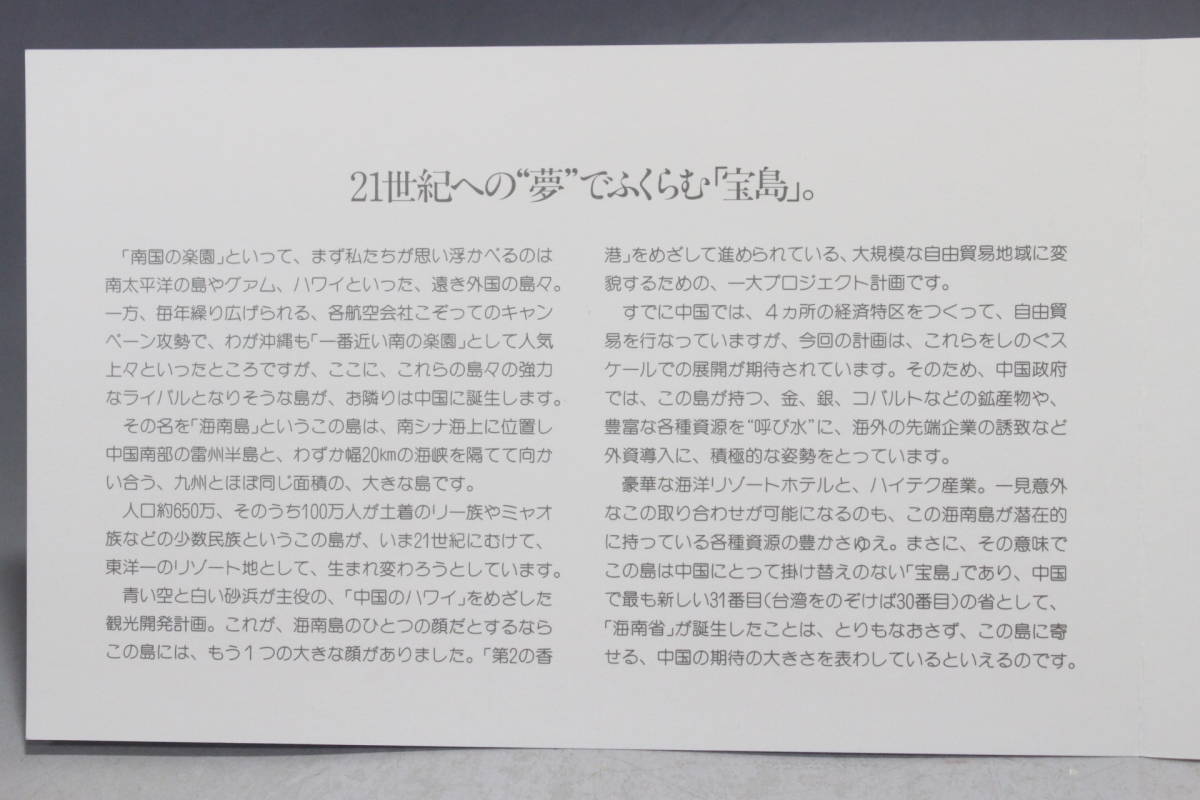 21世紀への“夢”でふくらむ「宝島」。
「南国の楽園」といって、まず私たちが思い浮かべるのは
南太平洋の島やグァム、ハワイといった、遠き外国の島々。
一方、毎年繰り広げられる、各航空会社こぞってのキャン
ペーン攻勢で、わが沖縄も「一番近い南の楽園」として人気
上々といったところですが、ここに、これらの島々の強力
なライバルとなりそうな島が、お隣りは中国に誕生します。
その名を「海南島」というこの島は、南シナ海上に位置し
中国南部の雷州半島と、わずか幅20kmの海峡を隔てて向か
い合う、九州とほぼ同じ面積の、大きな島です。
人口約650万、そのうち100万人が土着のリー族やミャオ
族などの少数民族というこの島が、いま21世紀にむけて、
東洋一のリゾート地として、生まれ変わろうとしています。
青い空と白い砂浜が主役の、「中国のハワイ」をめざした
観光開発計画。これが、海南島のひとつの顔だとするなら
この島には、もう1つの大きな顔がありました。「第2の香
港」をめざして進められている、大規模な自由貿易地域に変
貌するための、一大プロジェクト計画です。
すでに中国では、4ヵ所の経済特区をつくって、自由貿
易を行なっていますが、今回の計画は、これらをしのぐス
ケールでの展開が期待されています。そのため、中国政府
では、この島が持つ、金、銀、コバルトなどの鉱産物や、
豊富な各種資源を“呼び水”に、海外の先端企業の誘致など
外資導入に、積極的な姿勢をとっています。
豪華な海洋リゾートホテルと、ハイテク産業。一見意外
なこの取り合わせが可能になるのも、この海南島が潜在的
に持っている各種資源の豊かさゆえ。まさに、その意味で
この島は中国にとって掛け替えのない「宝島」であり、中国
で最も新しい31番目(台湾をのぞけば30番目)の省として、
「海南省」が誕生したことは、とりもなおさず、この島に寄
せる、中国の期待の大きさを表わしているといえるのです。